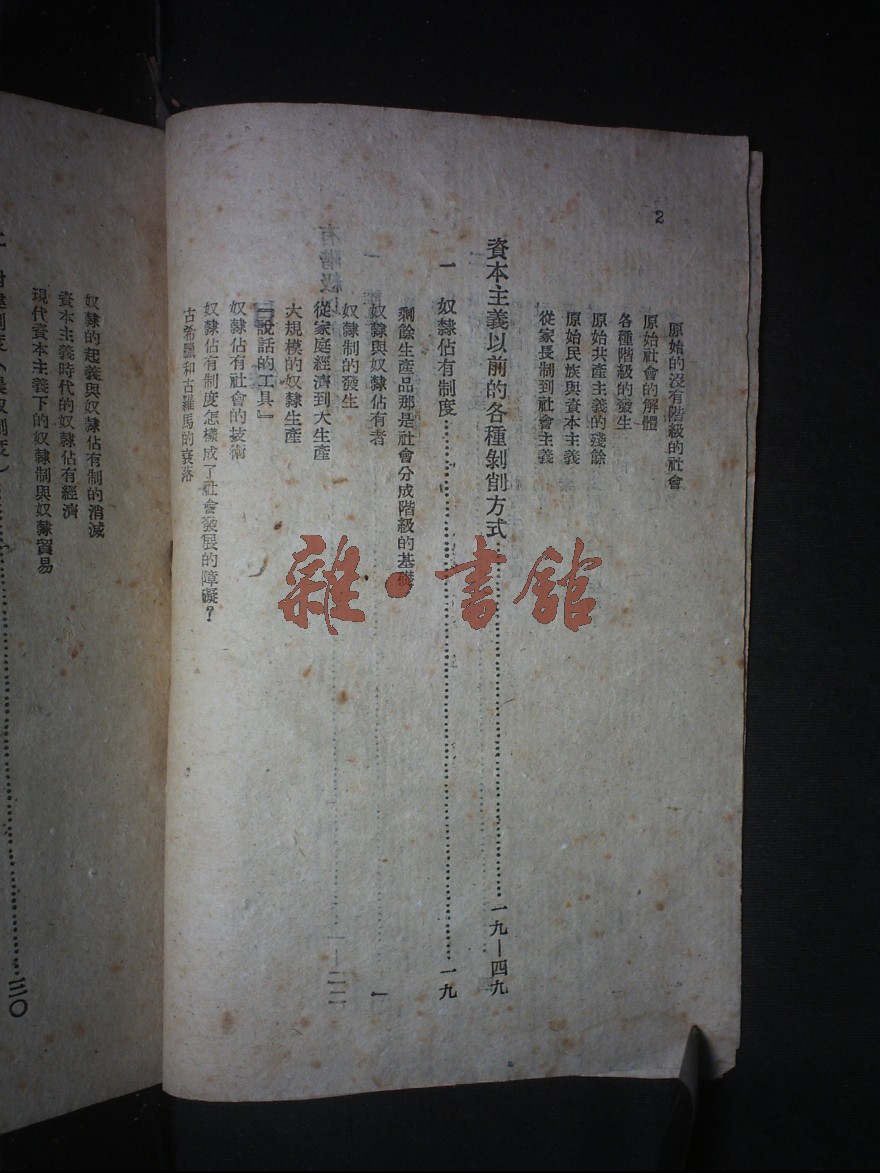 2
原始的沒有階級的社會
原始社會的解體
各種階級的發生
原始共產主義的殘餘
原始民族與資本主義
從家長制到社會主義
資本主義以前的各種剝削方式……一九—四九
一 奴隸佔有制度……一九
剩餘生產品那是社會分成階級的基礎
奴隸與奴隸佔有者
奴隸制的發生
從家庭經濟到大生產
大規模的奴隸生產
『說話的工具』
奴隸佔有社會的技術
奴隸佔有制度怎樣成了社會發展的障礙？
古希臘和古羅馬的衰落
奴隸的起義與奴隸佔有制的消滅
資本主義時代的奴隸佔有經濟
現代資本主義下的奴隸制與奴隸貿易
……三〇
雜·書館